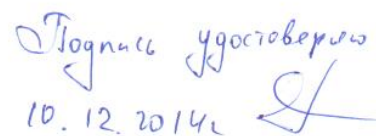 Подпись удостоверяю
10.12.2014г